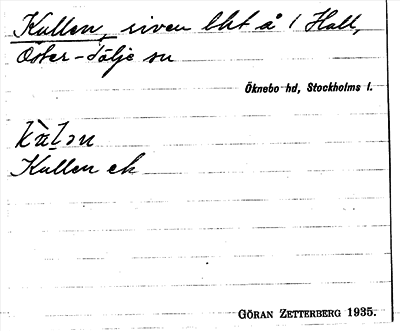 Kullen, riven bkt å 1 Hall,
Öster-Tälje sn
Öknebo hd, Stockholms l.
kùlən
Kullen ek
GÖRAN ZETTERBERG 1935.